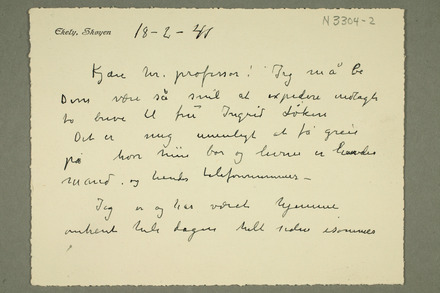 N 3304-2
Ekely, Skøyen 18-2-41
Kjære hr. professor! Jeg må be
Dem være så snil at expedere indlagte
to breve til frü Ingrid
Det er mig umuligt at få greie
på hvor hun bor og hvem er hendes
mand. og hendes telefonnummer -
Jeg er og har været hjemme
omtrent hele dagen helt siden isommer